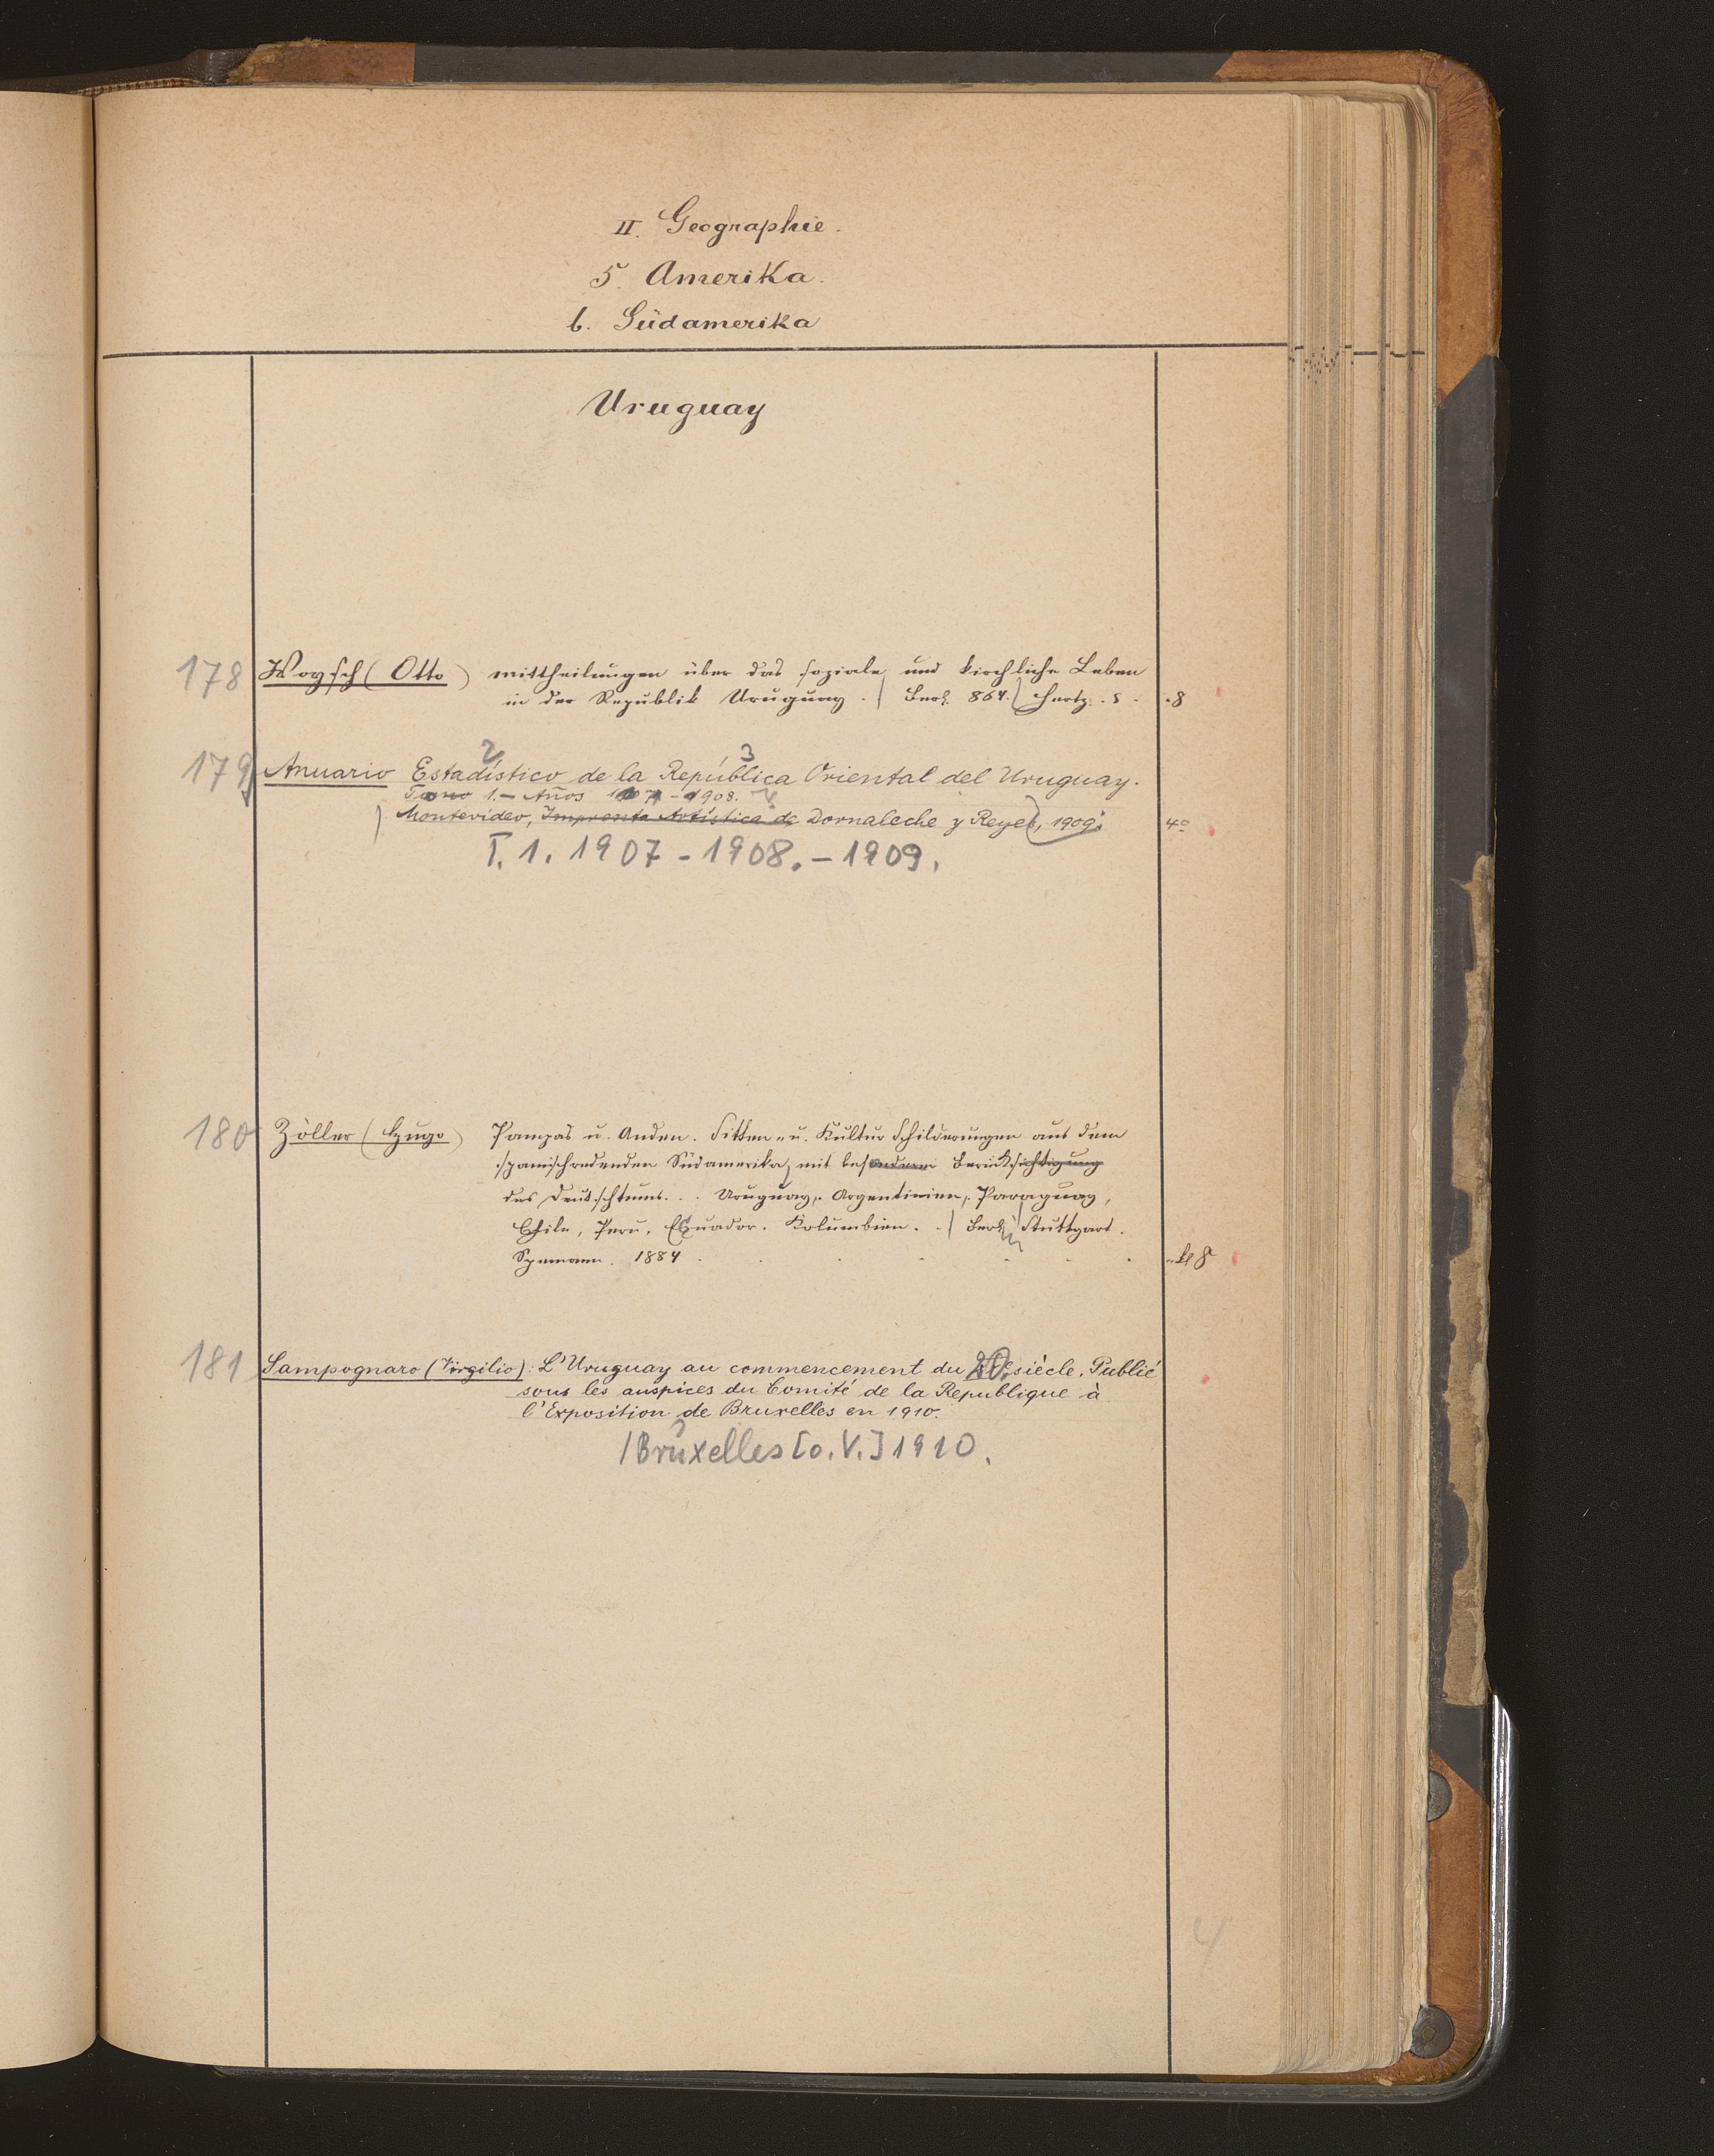 II. Geographie.
5. Amerika.
b. Südamerika
Uruguay
178 Woysch (Otto) mittheilungen über das soziale und kirchliche Leben
in der Republik Uruguay. / Berl. 864. / Hertz. 8. .8
2 3
179 Anuario Estadístico de la República Oriental del Uruguay.
Tomo 1.- Años 1907-1908.
) Montevideo, Imprenta Artística de Dornaleche y Reyes, 1909. 4º
T. 1. 1907-1908.-1909.
180 Zöller (Hugo) Pampas u. Anden. Sitten- u. Kultur Schilderungen aus dem
spanischredenden Südamerika, mit besonderer Berücksichtigung
des Deutschtums. . . Uruguay, Argentinien, Paraguay,
Chile, Peru, Equador. Kolumbien. . / Berlin Stuttgart.
Spemann. 1884 . . . . . . . kl 8
181 Sampognaro (Virgilio): L'Uruguay au commencement du 20. siècle. Publié
sous les auspices du Comité de la Republique à
l'Exposition de Bruxelles en 1910.
/ Bruxelles [o. V.] 1910.
4